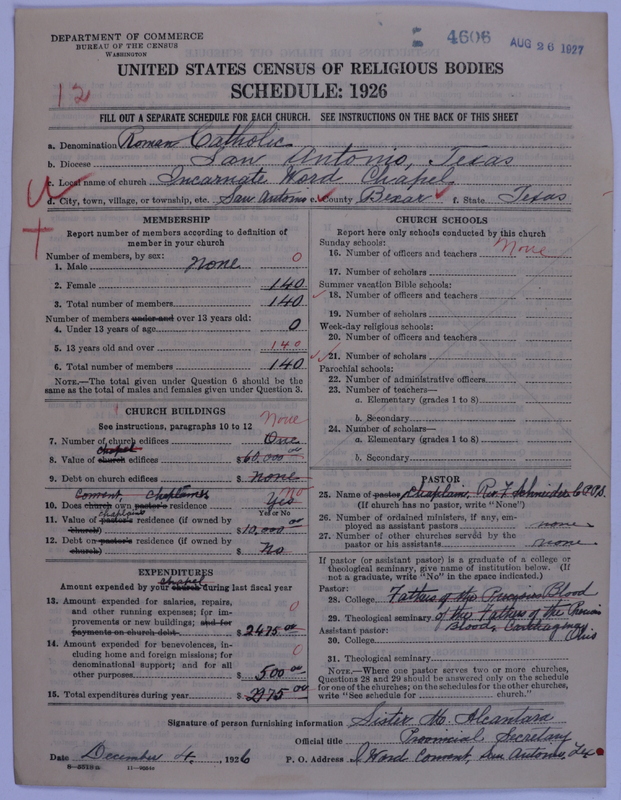 DEPARTMENT OF COMMERCE
BUREAU OF THE CENSUS
WASHINGTON
4606
AUG 26 1927
UNITED STATES CENSUS OF RELIGIOUS BODIES
SCHEDULE: 1926
12
FILL OUT A SEPARATE SCHEDULE FOR EACH CHURCH. SEE INSTRUCTIONS ON THE BACK OF THIS SHEET
a. Denomination Roman Catholic
b. Diocese San Antonio, Texas
c. Local name of church Incarnate Word Chapel
d. City, town, village, or township, etc. San Antonio e. County Bexar f. State Texas
MEMBERSHIP
Report number of members according to definition of
member in your church
Number of members, by sex:
1. Male none 0
2. Female 140
3. Total number of members 140
Number of members under and over 13 years old:
4. Under 13 years of age 0
5. 13 years old and over 140
6. Total number of members 140
NOTE.—The total given under Question 6 should be the
same as the total of males and females given under Question 3.
CHURCH BUILDINGS
See instructions, paragraphs 10 to 12 None
7. Number of church edifices One
chapel
8. Value of church edifices $60,000 00
9. Debt on church edifices $none
Convent, chaplain's No
10. Does church own pastor's residence Yes
Yes or No
chaplain's
11. Value of pastor's residence (if owned by
church) $10,000 00
12. Debt on pastor's residence (if owned by
church) $No
EXPENDITURES
chapel
Amount expended by your church during last fiscal year
13. Amount expended for salaries, repairs, 0
and other running expenses; for im-
provements or new buildings; and for
payments on church debt $2475 00
14. Amount expended for benevolences, in- 0
cluding home and foreign missions; for
denominational support; and for all
other purposes $500 00
15. Total expenditures during year $2975 00
CHURCH SCHOOLS
Report here only schools conducted by this church
Sunday schools:
16. Number of officers and teachers None
17. Number of scholars
Summer vacation Bible schools:
18. Number of officers and teachers
19. Number of scholars
Week-day religious schools:
20. Number of officers and teachers
21. Number of scholars
Parochial schools:
22. Number of administrative officers
23. Number of teachers—
a. Elementary (grades 1 to 8)
b. Secondary
24. Number of scholars—
a. Elementary (grades 1 to 8)
b. Secondary
PASTOR
25. Name of pastor, Chaplain, Rev. F. Schneider C.P.P.S.
(If church has no pastor, write "None")
26. Number of ordained ministers, if any, em-
ployed as assistant pastors none
27. Number of other churches served by the
pastor or his assistants none
If pastor (or assistant pastor) is a graduate of a college or
theological seminary, give name of institution below. (If
not a graduate, write "No" in the space indicated.)
Pastor:
28. College Fathers of the Precious Blood
29. Theological seminary of the Fathers of the Precious
Assistant pastor: Blood, Carthagena, Ohio
30. College
31. Theological seminary
NOTE.—Where one pastor serves two or more churches,
Questions 28 and 29 should be answered only on the schedule
for one of the churches; on the schedules for the other churches,
write "See schedule for church."
Signature of person furnishing information Sister M. Alcantara
Official title Provincial Secretary
Date December 4, 1926 P. O. Address I Word Convent, San Antonio, Tex